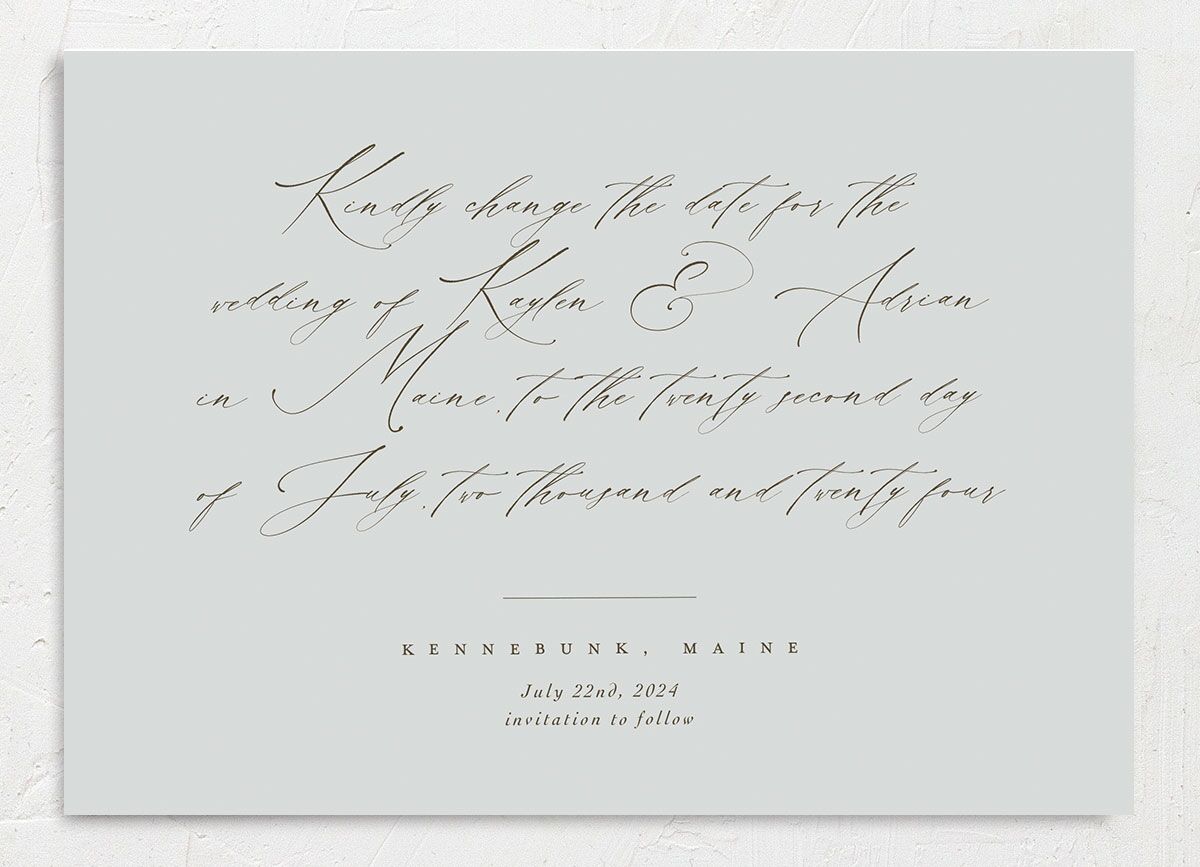 Kindly change the date for the
wedding of Kaylen & Adrian
in Maine, to the twenty second day
of July, two thousand and twenty four
KENNEBUNK, MAINE
July 22nd, 2024
invitation to follow